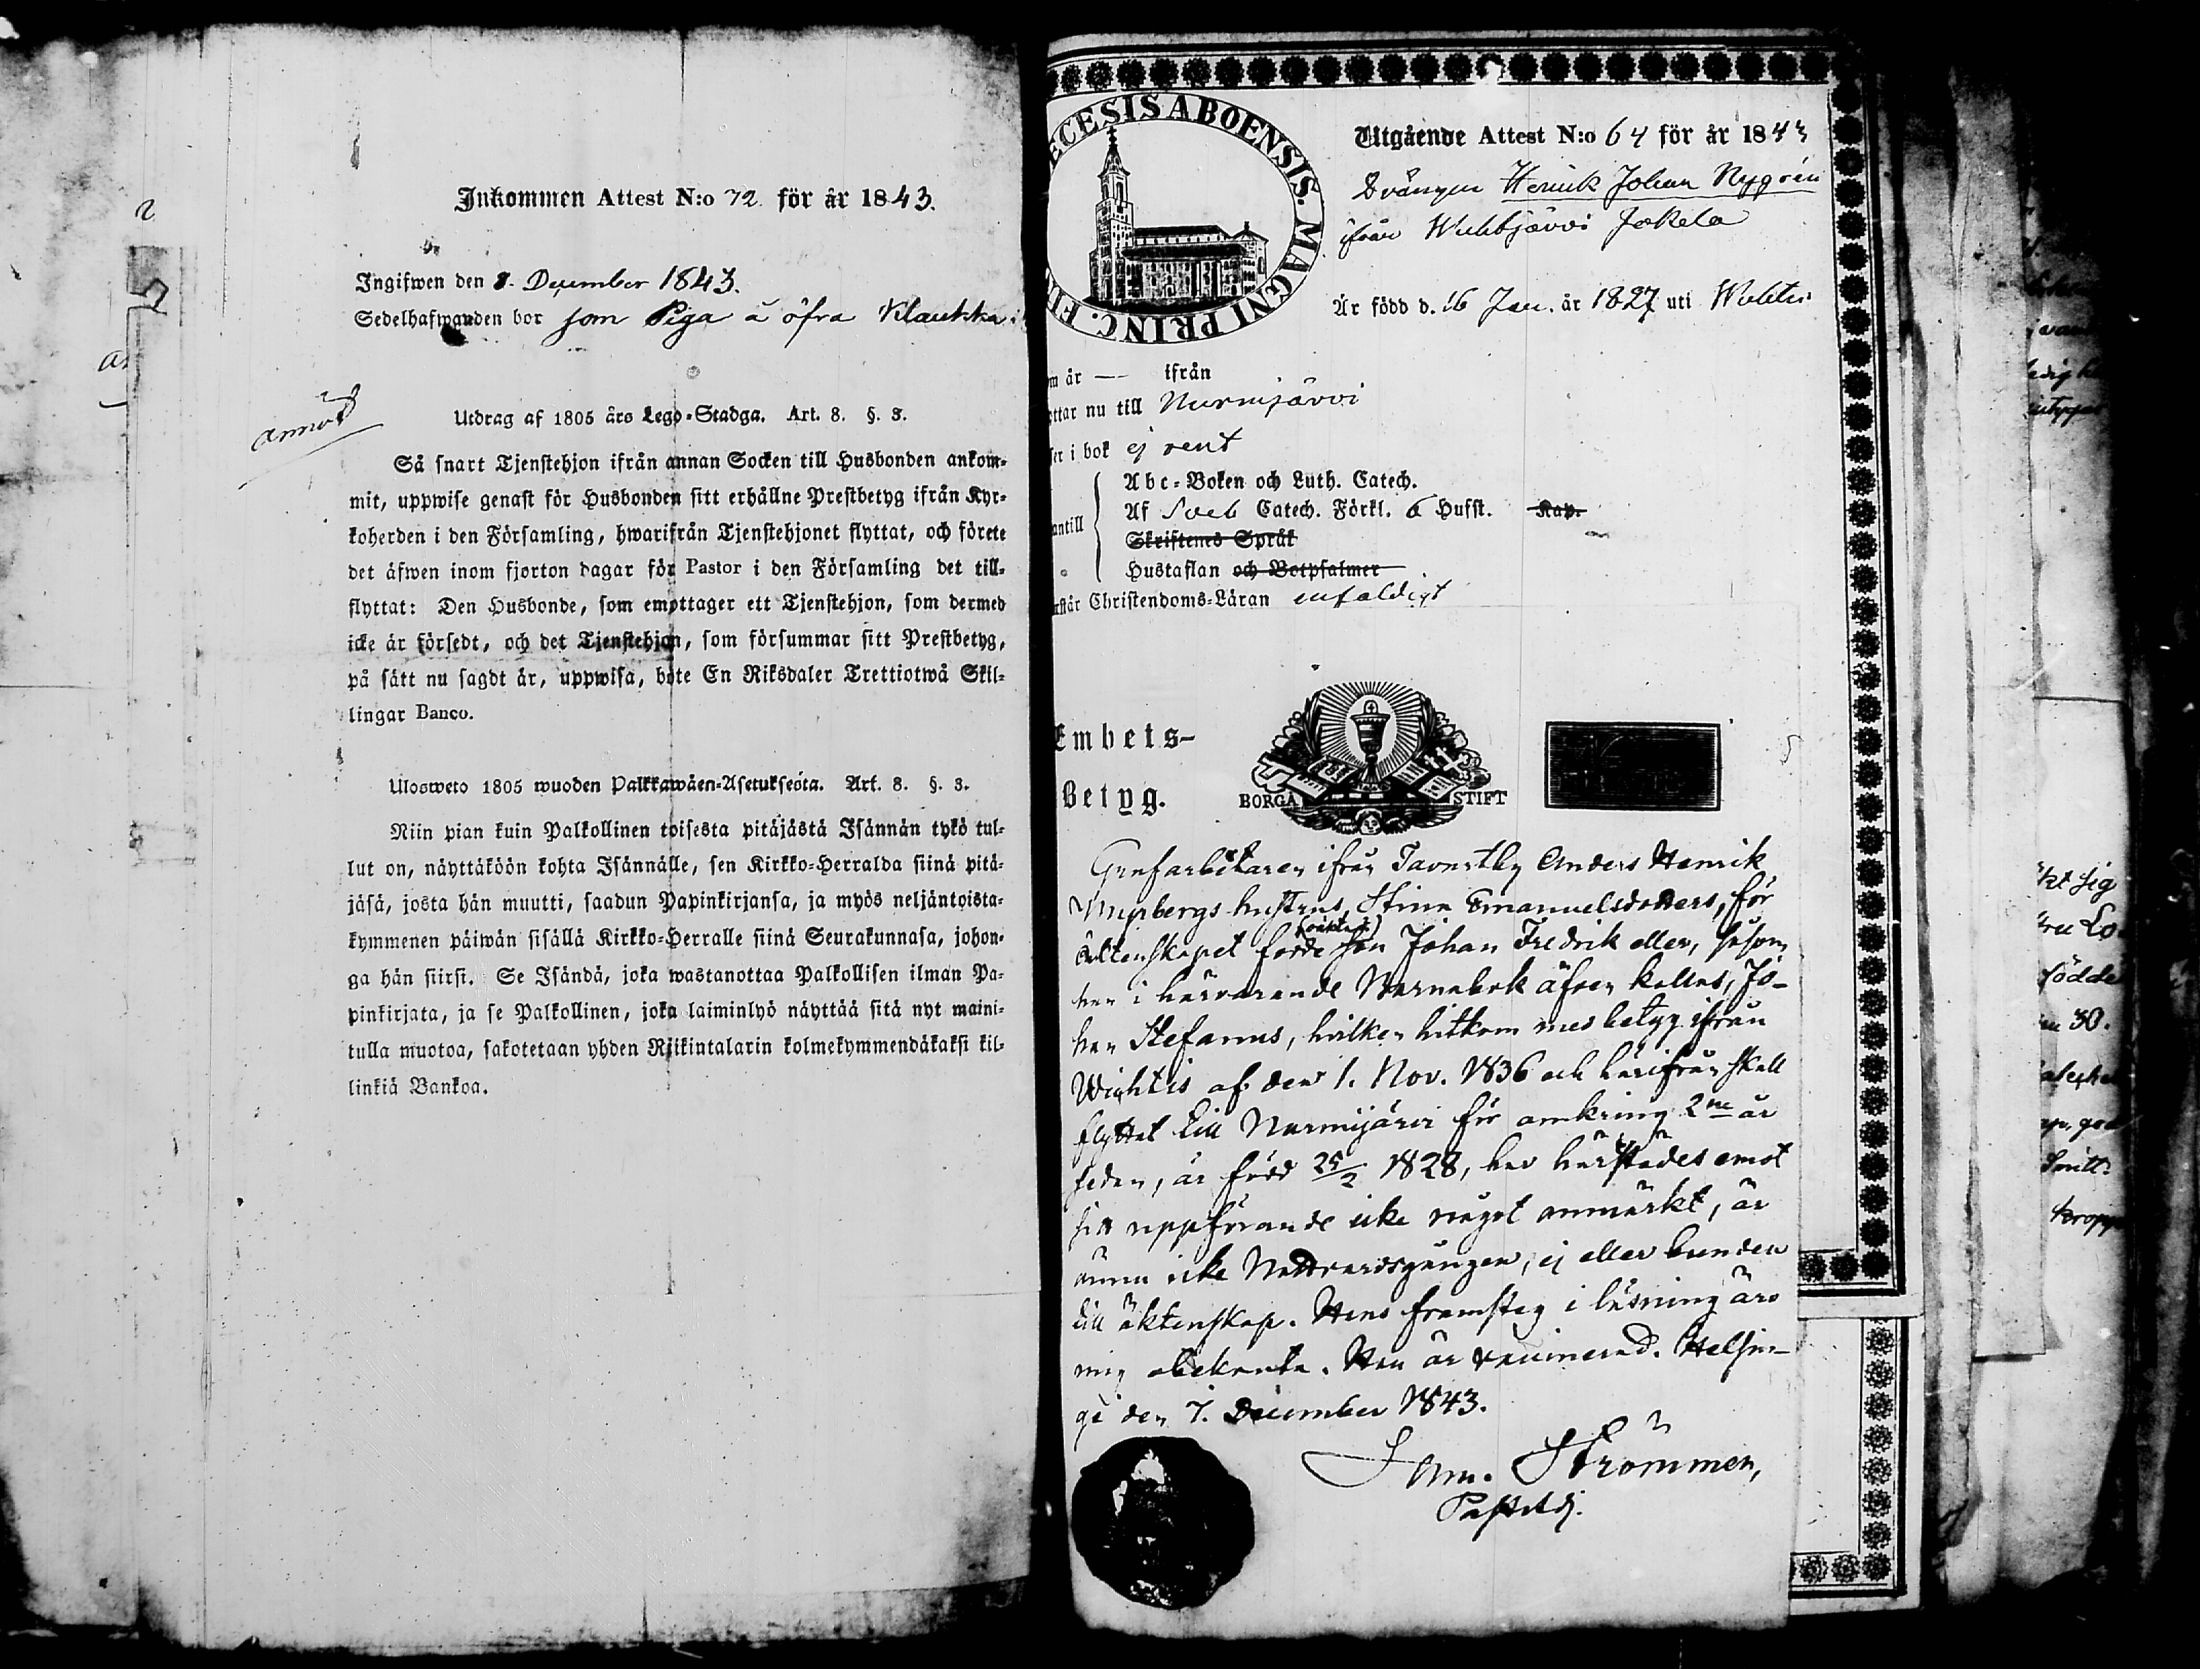 Inkommen Attest N:o 72 för år 1843.
Ingifwen den 8. December 1843.
Sedelhafwanden bor som Piga å öfra Klaukka
annot
Utdrag af 1805 års Lego-Stadga. Art. 8. §. 3.
Så snart Tjenstehjon ifrån annan Socken till Husbonden ankom-
mit, uppwise genast för Husbonden sitt erhållne Prestbetyg ifrån Kyr-
koherden i den Församling, hwarifrån Tjenstehjonet flyttat, och förete
det äfwen inom fjorton dagar för Pastor i den Församling det till-
flyttat: Den Husbonde, som emottager ett Tjenstehjon, som dermed
icke är försedt, och det Tjenstehjon, som försummar sitt Prestbetyg,
på sätt nu sagdt är, uppwisa, böte En Riksdaler Trettiotwå Skil-
lingar Banco.
Ulosweto 1805 wuoden Palkkawäen-Asetuksesta. Art. 8. §. 3.
Niin pian kuin Palkollinen toisesta pitäjästä Isännän tykö tul-
lut on, näyttäköön kohta Isännälle, sen Kirkko-Herralda siinä pitä-
jäsä, josta hän muutti, saadun Papinkirjansa, ja myös neljäntoista-
kymmenen päiwän sisällä Kirkko-Herralle siinä Seurakunnasa, johon-
ga hän siirsi. Se Isändä, joka wastanottaa Palkollisen ilman Pa-
pinkirjata, ja se Palkollinen, joka laiminlyö näyttää sitä nyt maini-
tulla muotoa, sakotetaan yhden Riikintalarin kolmekymmendäkaksi kil-
linkiä Bankoa.
ECESIS ABOENSIS. MAGNI PRINC. FI
Utgående Attest N:o 64 för år 1843
Drängen Henrik Johan Nygrén
ifrån Wuhtjärvi Jokela
Är född d. 16 Jan. år 1827 uti Wichtis
m år — ifrån
ttar nu till Nurmijärvi
ser i bok ej rent
Abc-Boken och Luth. Catech.
antill Af Sveb Catech. Förkl. 6 Hufst. Kap.
Skriftenes Språk
Hustaflan och Botpsalmer
rstår Christendoms-Läran enfaldigt
Embets-
Betyg.
BORGÅ STIFT
Grufarbetaren ifrån Tavastby Anders Henrik
Myrbergs hustrus, Stina Emanuelsdotters, för
(oäkta)
äktenskapet födde son Johan Fredrik eller, såsom
han i härvarande Barnabok äfven kallas, Jo-
han Stefanus, hvilken hitkom med betyg ifrån
Wichtis af den 1. Nov. 1836 och härifrån skall
flyttat till Nurmijärvi för omkring 2ne år
sedan, är född 25/2 1828, har härstädes emot
sitt uppförande icke något anmärkt, är
ännu icke Nattvardsgången, ej eller bunden
till äktenskap. Hans framsteg i läsning äro
mig obekanta. Han är vaccinerad. Helsin-
ge den 7. December 1843.
Sam. Strömmer,
Past. Adj.
kt sig
födde
30.
kropp